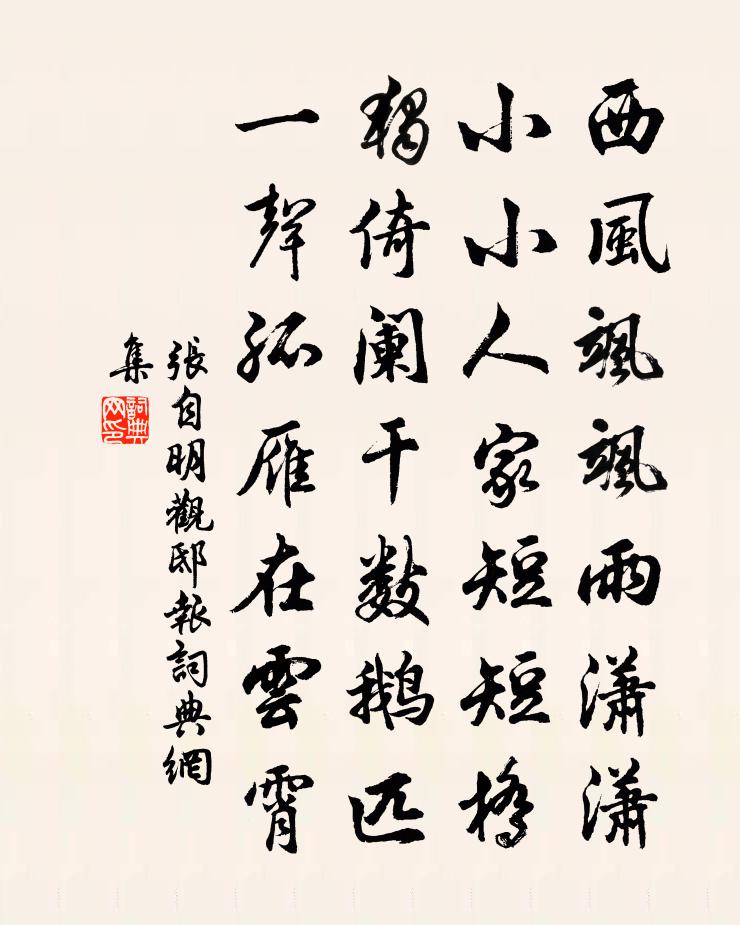 西風颯颯雨瀟瀟
小小人家短短橋
獨倚闌干數鵝匹
一聲孤雁在雲霄
張自明觀邸報詞典網
集
詞典網印